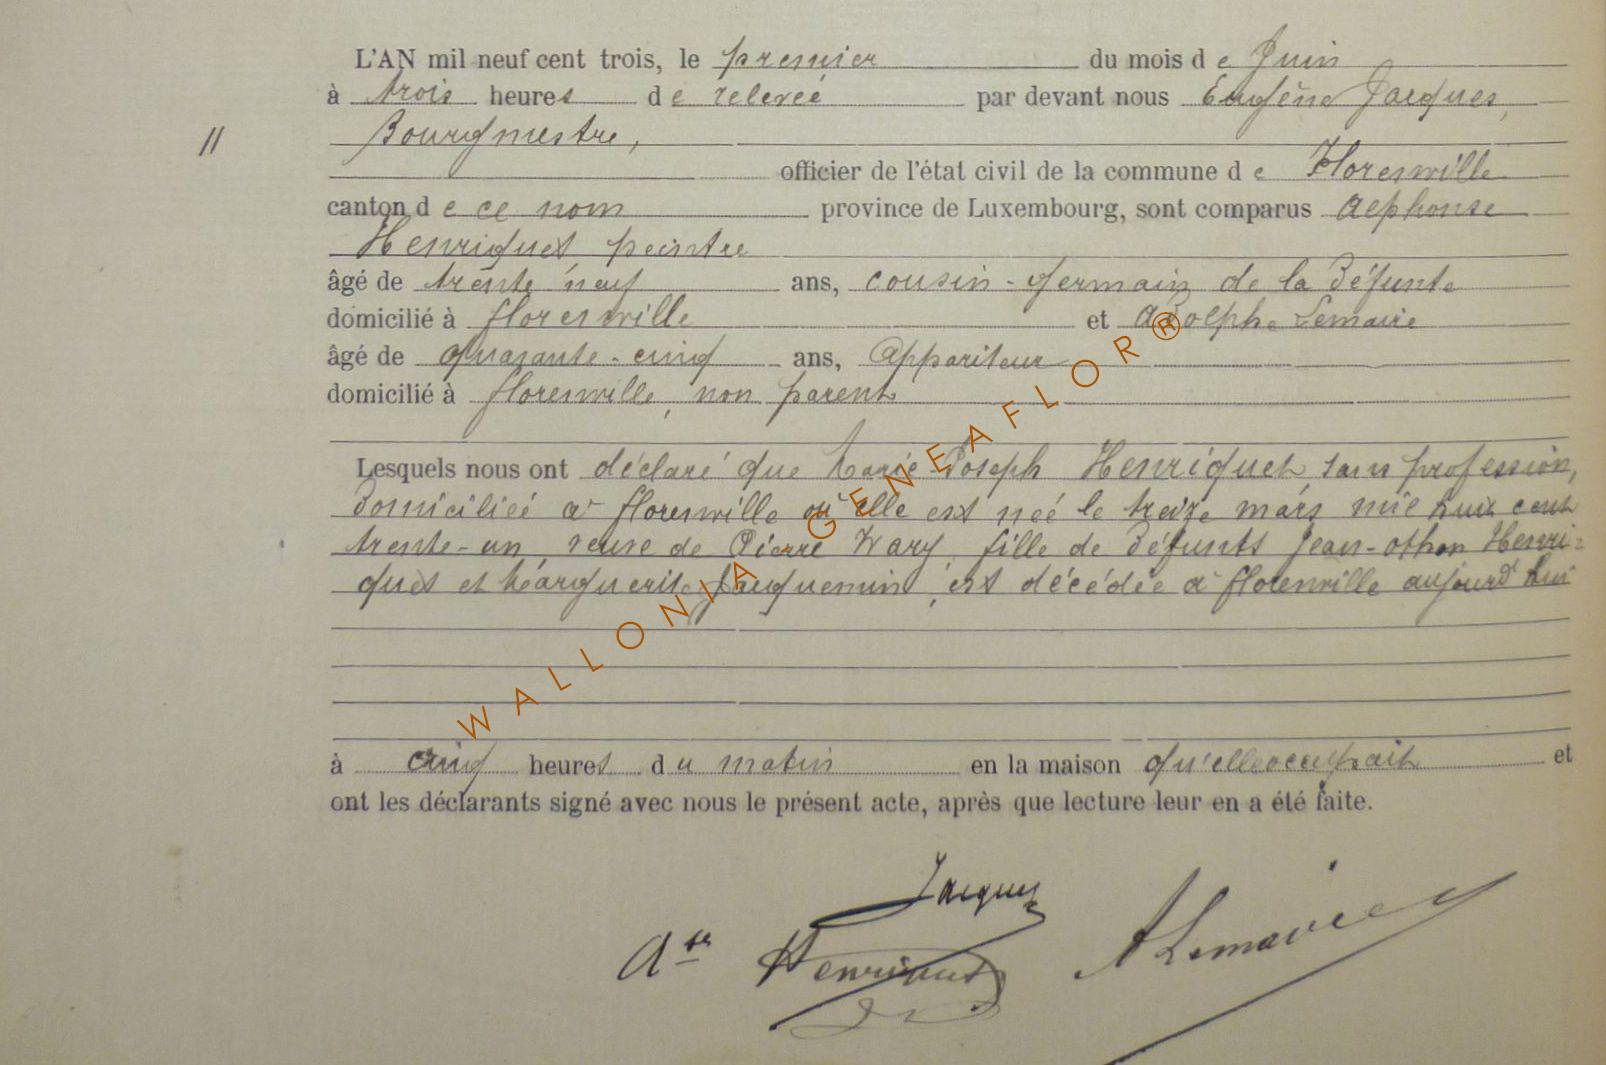 L'AN mil neuf cent trois, le premier du mois de Juin
à trois heures de relevée par devant nous Eugène Jacques,
Bourgmestre,
officier de l'état civil de la commune de Florenville
canton de ce nom province de Luxembourg, sont comparus Alphonse
Henriquet, peintre
âgé de trente neuf ans, cousin-germain de la défunte
domicilié à florenville et Adolphe Lemaire
âgé de quarante-cinq ans, Appariteur
domicilié à florenville, non parent
Lesquels nous ont déclaré que Marie Joseph Henriquet, sans profession,
domiciliée à florenville où elle est née le treize mars mil huit cent
trente-un, veuve de Pierre Wary, fille de défunts Jean-othon Henri-
quet et Marguerite Jauquemin, est décédée à florenville aujourd'hui
à cinq heures du matin en la maison qu'elle occupait et
ont les déclarants signé avec nous le présent acte, après que lecture leur en a été faite.
Jacques
Ase Henriquet
A Lemaire
11
WALLONIA GENEAFLOR®